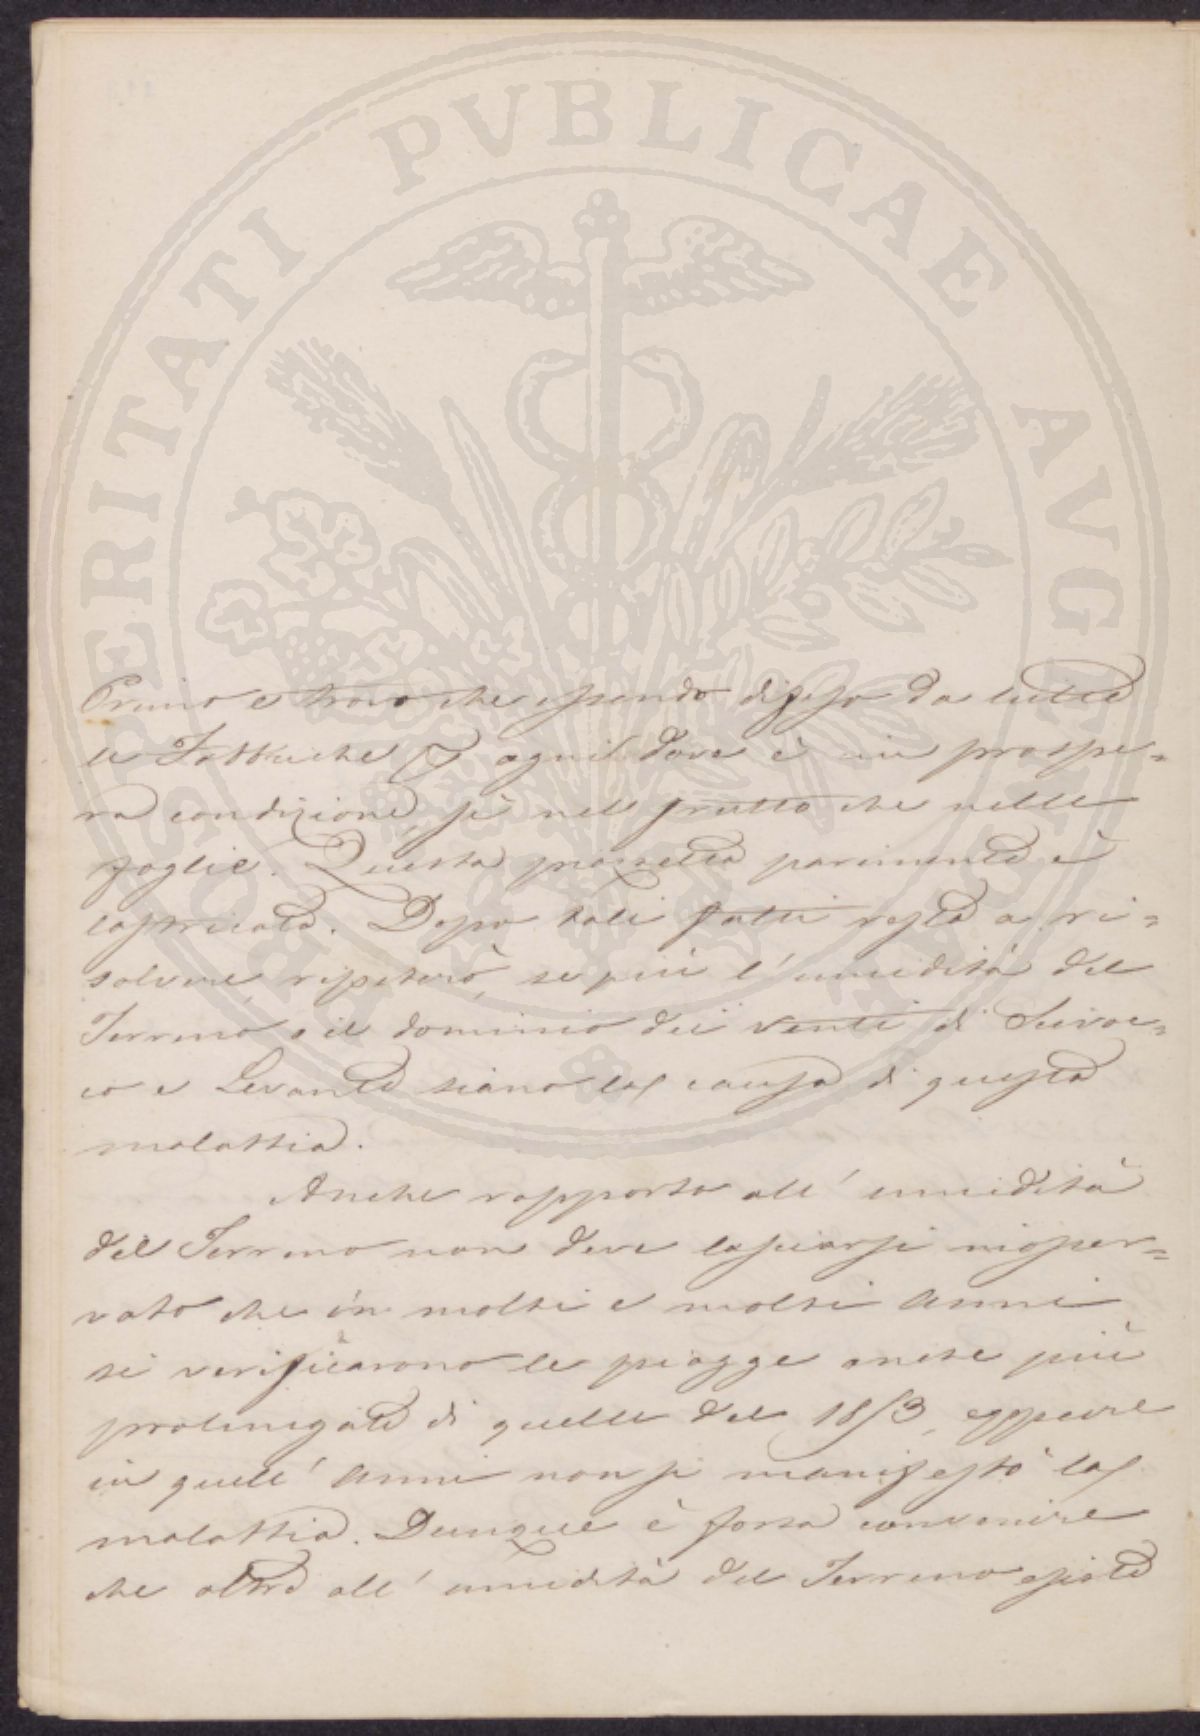 PROSPERITATI PVBLICAE AVGENDAE
Primo e trovo che essendo difeso da tutte
le Fabbriche d'ogni dove è in prospe=
ra condizione, sì nel frutto che nelle
foglie. Questa piazzetta parimente è
lastricata. Dopo tali fatti resta a ri=
solvere, ripeterò, se più l'umidità del
Terreno, o il dominio dei venti di Sciroc=
co e Levante siano la causa di questa
malattia.
Anche rapporto all'umidità
del Terreno non deve lasciarsi inosser=
vato che in molti e molti anni
si verificarono le piogge anche più
prolungate di quelle del 1853, eppure
in quell'anni non si manifestò la
malattia. Dunque è forza convenire
che oltre all'umidità del Terreno esista